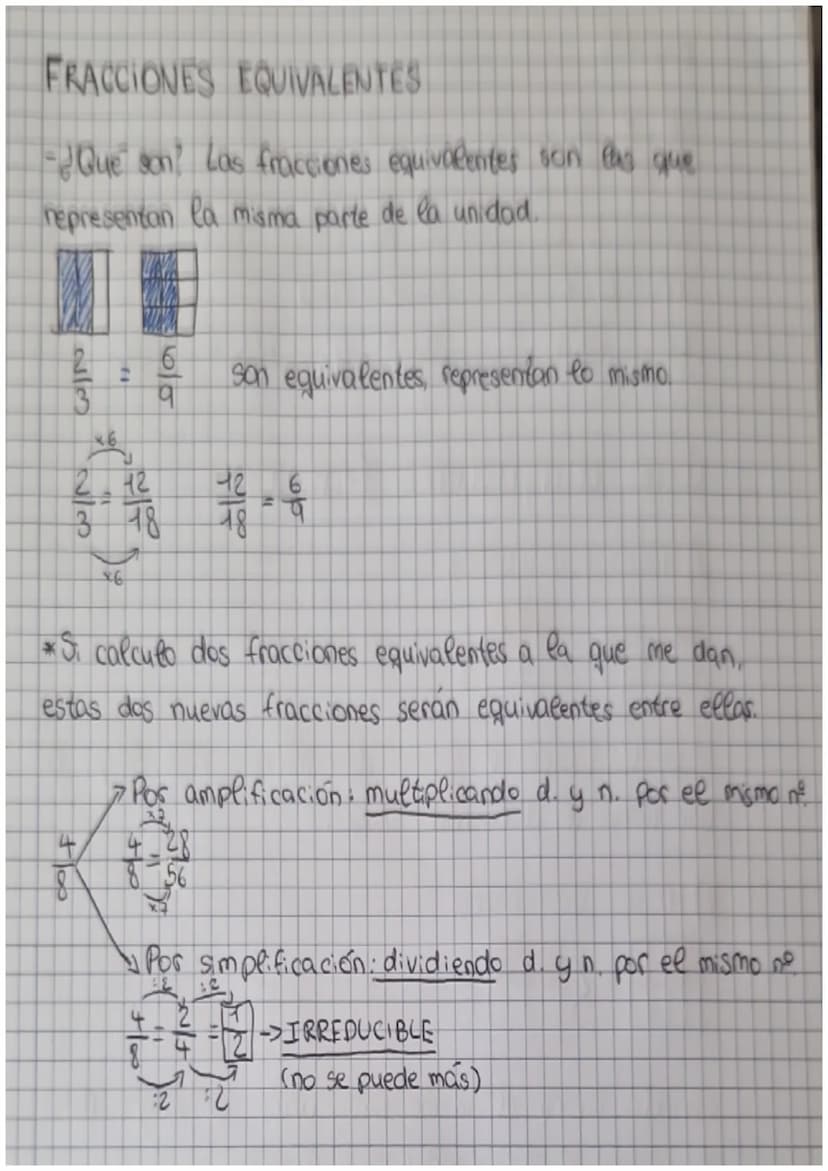 FRACCIONES EQUIVALENTES
-¿Qué son? Las fracciones equivalentes son las que
representan la misma parte de la unidad.
2/3 = 6/9 son equivalentes, representan lo mismo.
x6
2/3 = 12/18 12/18 = 6/9
x6
*Si calculo dos fracciones equivalentes a la que me dan,
estas dos nuevas fracciones serán equivalentes entre ellas.
Por amplificación: multiplicando d. y n. por el mismo nº
x7
4/8 4/8 = 28/56
x7
Por simplificación: dividiendo d. y n. por el mismo nº
:2 :2
4/8 = 2/4 = 1/2 -> IRREDUCIBLE
(no se puede más)
:2 :2